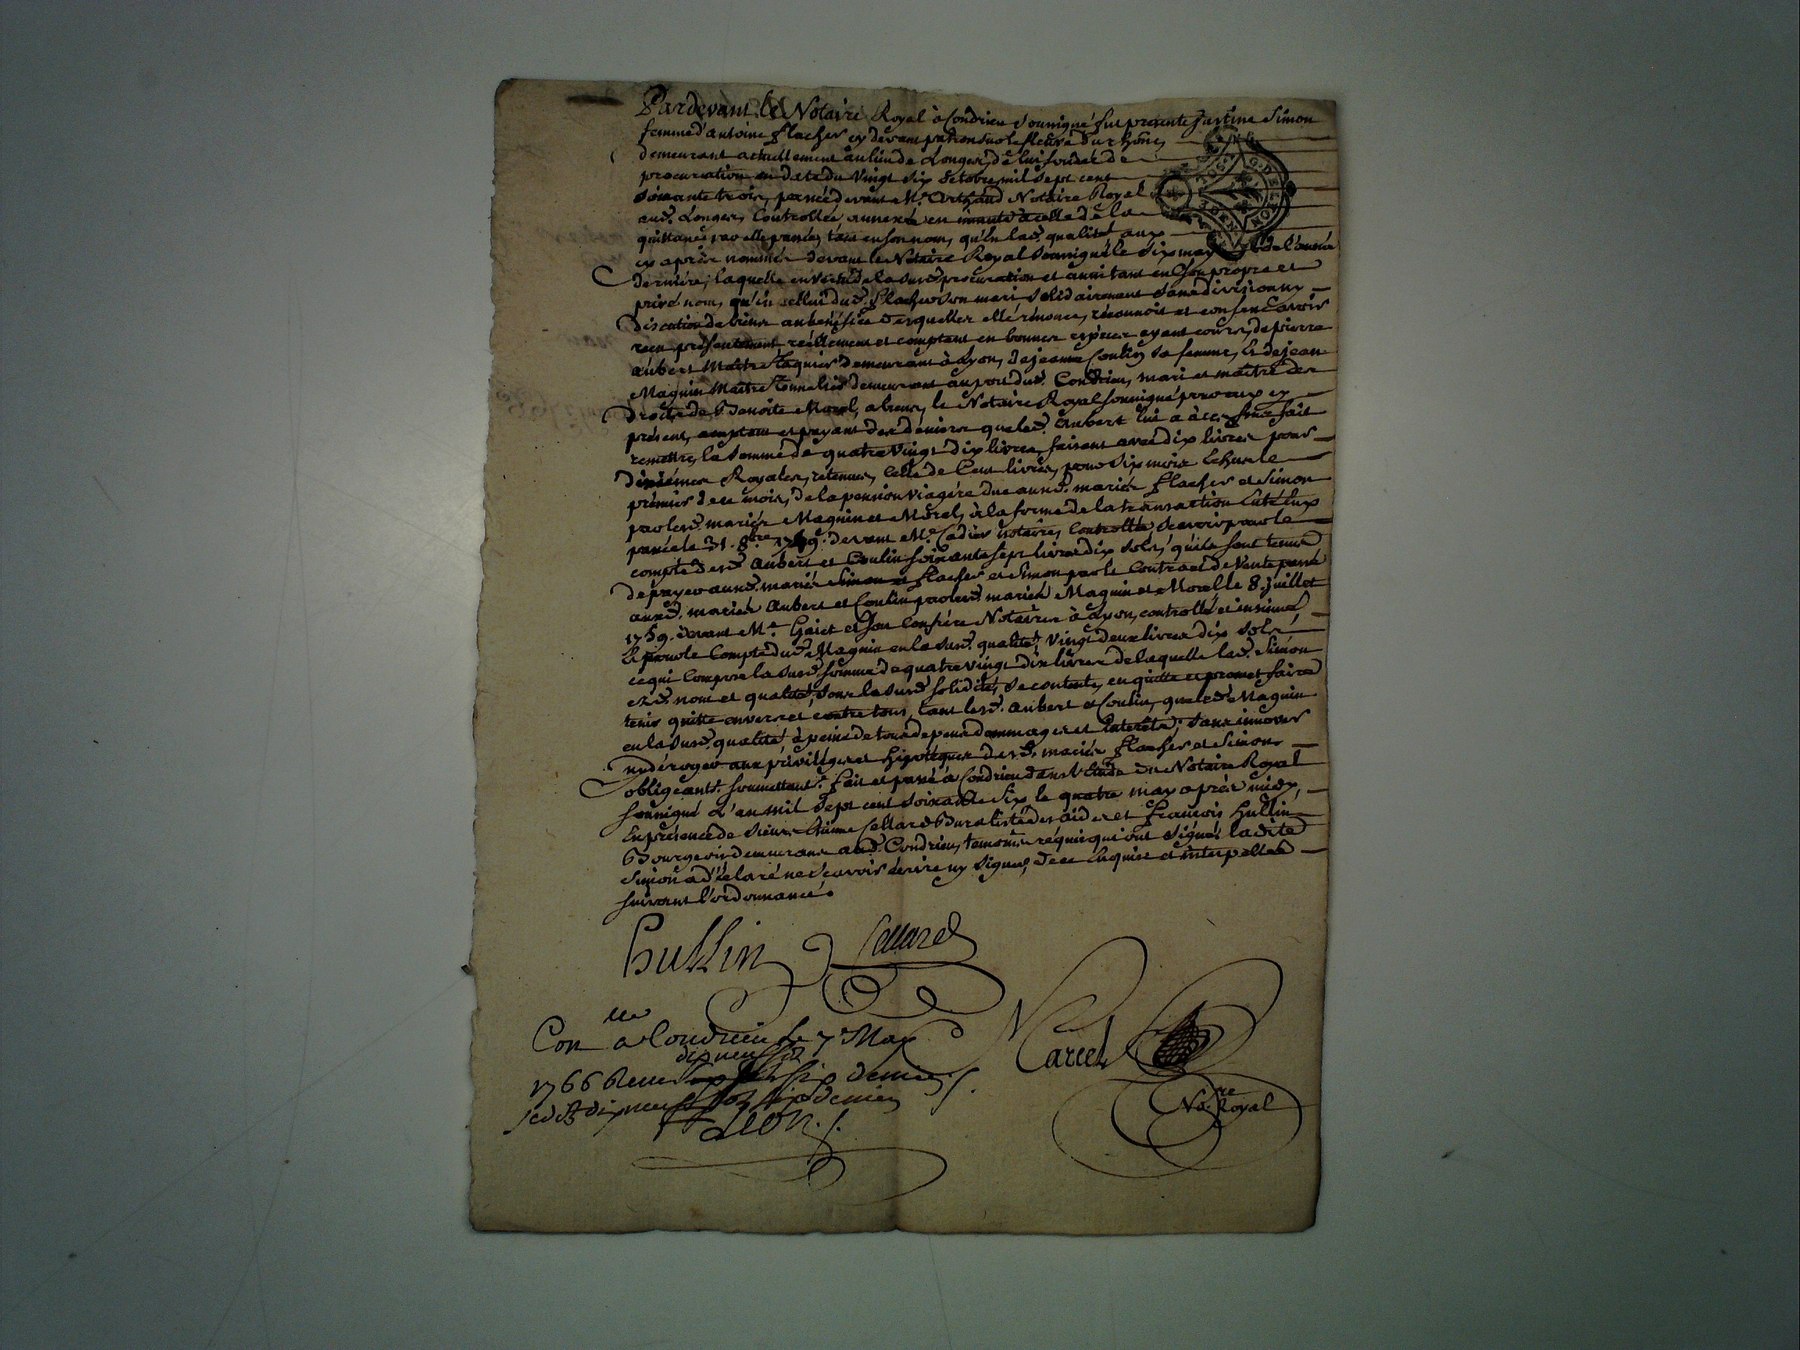 Pardevant le Notaire Royal à Condrieu soussigné fut presente Justine Simon
femme d'antoine flacher cy devant patron sur le fleuve du rhône,
demeurant actuellement au lieu de Longes, de lui fondée de
procuration en datte du vingt six octobre mil sept cent
soixante trois, passée devant Me. Notaire Royal
aud. Longes, Controllée annexée en minute à celle de la
quittance par elle passée, tant en son nom, qu'en lad. qualité aux
cy après nommés devant le Notaire Royal soussigné le six may de l'année
derniere, laquelle en vertu de la susd. procuration et aussi tant en son propre et
privé nom, qu'en celluy dud. flacher son mari solidairement sans division ny
discution de biens au benefice desquelles elle renonce, reconnoit et confesse avoir
reçu présentement réellement et comptant en bonnes espèces ayant cours, de pierre
aubert Maitre demeurant à Lyon, de jeanne Coulin sa femme, & de jean
Maguin Maitre Tonnelier demeurant au port dud. Condrieu, mari et maitre des
droits de Benoite Morel, absens, le Notaire Royal soussigné pour eux cy
présent, comptant et payant des deniers que led. Aubert lui a à ces fins fait
remettre, la somme de quatre vingt dix livres, faisant avec dix livres pour
dixièmes Royales, retenues, celle de Cent livres, pour six mois échus le
premier de ce mois, de la pension viagére due auxd. mariés flacher et Simon
par lesd. mariés Maguin et Morel, à la forme de la transaction entr'eux
passée le 31. 8.bre devant Me. Cadier notaire, Controllée, sçavoir pour le
compte desd. Aubert et Coulin soixante sept livres dix sols, qu'ils sont tenus
de payer auxd. mariés Simon et flacher et Simon par le Contract de Vente passé
auxd. mariés Aubert et Coulin par lesd. mariés Maguin et Morel le 8. juillet
1759. devant Me. et son Confrère Notaires à Lyon, controllé et insinué,
& pour le Compte dud. Maguin en la susd. qualité, vingt deux livres dix sols,
ce qui compose la susd. somme de quatre vingt dix livres de laquelle lad. Simon
esd. nom et qualité, sous la susd. solidité, se contente, en quitte et promet faire
tenir quitte envers et contre tous, tant lesd. Aubert et Coulin, que led. Maguin
en la susd. qualité, à peine de tous depens dommages et interêts, sans innover
ny déroger aux privilèges et hipotèques desd. mariés flacher et Simon
obligeant. soumettant. fait et passé à Condrieu dans l'Etude du Notaire Royal
soussigné L'an mil sept cent soixante six le quatre may après midy,
En présence de sieurs Cellard Buraliste des aides et François Hullin
Bourgeois demeurans aud. Condrieu, temoins requis qui ont signé, ladite
Simon a déclaré ne sçavoir écrire ny signer, de ce enquise et interpellée
suivant l'ordonnance.
Hullin Cellard
Con.lle à Condrieu le 7e May
dix neuf sols
1766 Reçu six deniers
Marcel
No.re Royal